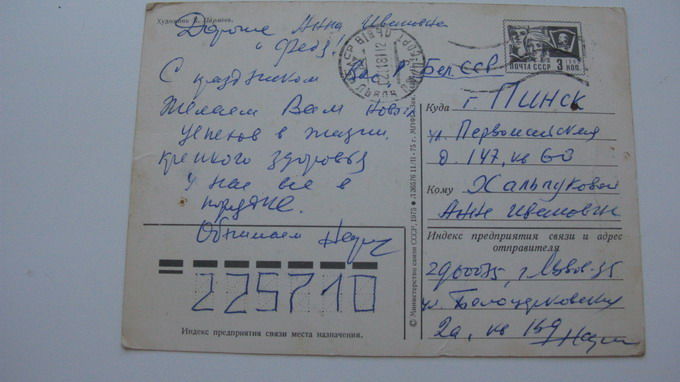 Художник А. Пармеев.
Дорогие Анна Ивановна
и Федя!
С праздником Вас!
Желаем Вам новых
успехов в жизни,
крепкого здоровья
У нас все в
порядке.
Обнимаем
225710
Индекс предприятия связи места назначения.
© Министерство связи СССР, 1975
ПОЧТА СССР 3 КОП.
Бел. ССР
Куда г. Пинск
ул. Первомайская
д. 147, кв 63
Кому Хальпуковой
Анне Ивановне
Индекс предприятия связи и адрес
отправителя
290035, г. Львов-35
ул. Белоцерковская
2а, кв 159